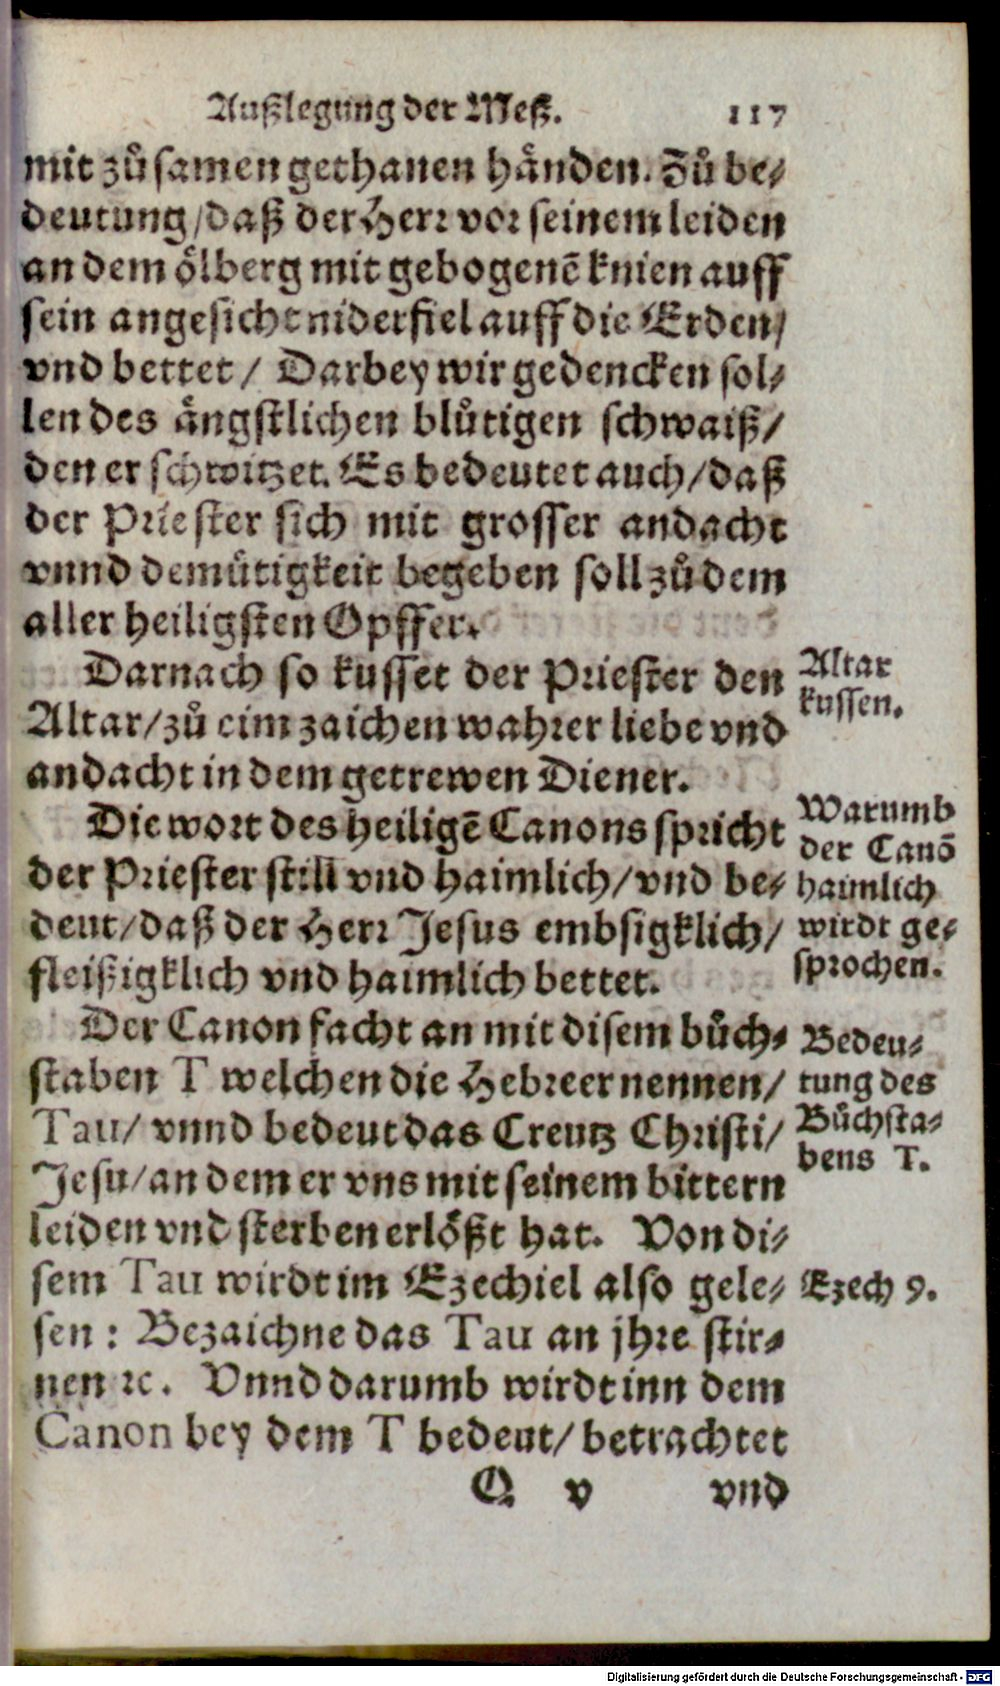 Außlegung der Meß. 117
mit zůsamen gethanen hånden. Zů be-
deutung/daß der Herr vor seinem leiden
an dem ölberg mit gebogenē knien auff
sein angesicht niderfiel auff die Erden/
vnd bettet/ Darbey wir gedencken sol-
len des ängstlichen blůtigen schwaiß/
den er schwitzet. Es bedeutet auch/daß
der Priester sich mit grosser andacht
vnnd demütigkeit begeben soll zů dem
aller heiligsten Opffer.
Darnach so kusset der Priester den
Altar/zů eim zaichen wahrer liebe vnd
andacht in dem getrewen Diener.
Altar
kussen.
Die wort des heiligē Canons spricht
der Priester still vnd haimlich/vnd be-
deut/daß der Herr Jesus embsigklich/
fleißigklich vnd haimlich bettet.
Warumb
der Canō
haimlich
wirdt ge-
sprochen.
Der Canon facht an mit disem bůch-
staben T welchen die Hebreer nennen/
Tau/ vnnd bedeut das Creutz Christi/
Jesu/an dem er vns mit seinem bittern
leiden vnd sterben erlößt hat. Von di-
sem Tau wirdt im Ezechiel also gele-
sen: Bezaichne das Tau an jhre stir-
nen ꝛc. Vnnd darumb wirdt inn dem
Canon bey dem T bedeut/ betrachtet
Bedeu-
tung des
Bůchsta-
bens T.
Ezech 9.
Q v vnd
Digitalisierung gefördert durch die Deutsche Forschungsgemeinschaft - DFG